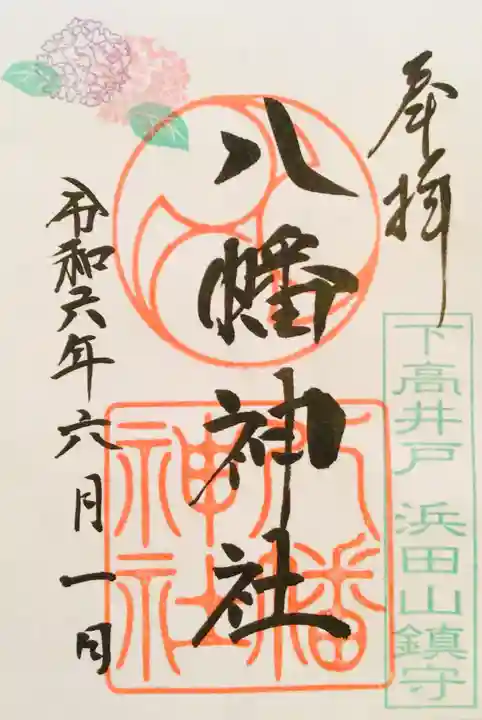 奉拝
下高井戸 浜田山鎮守
八幡神社
八幡神社
令和六年六月一日